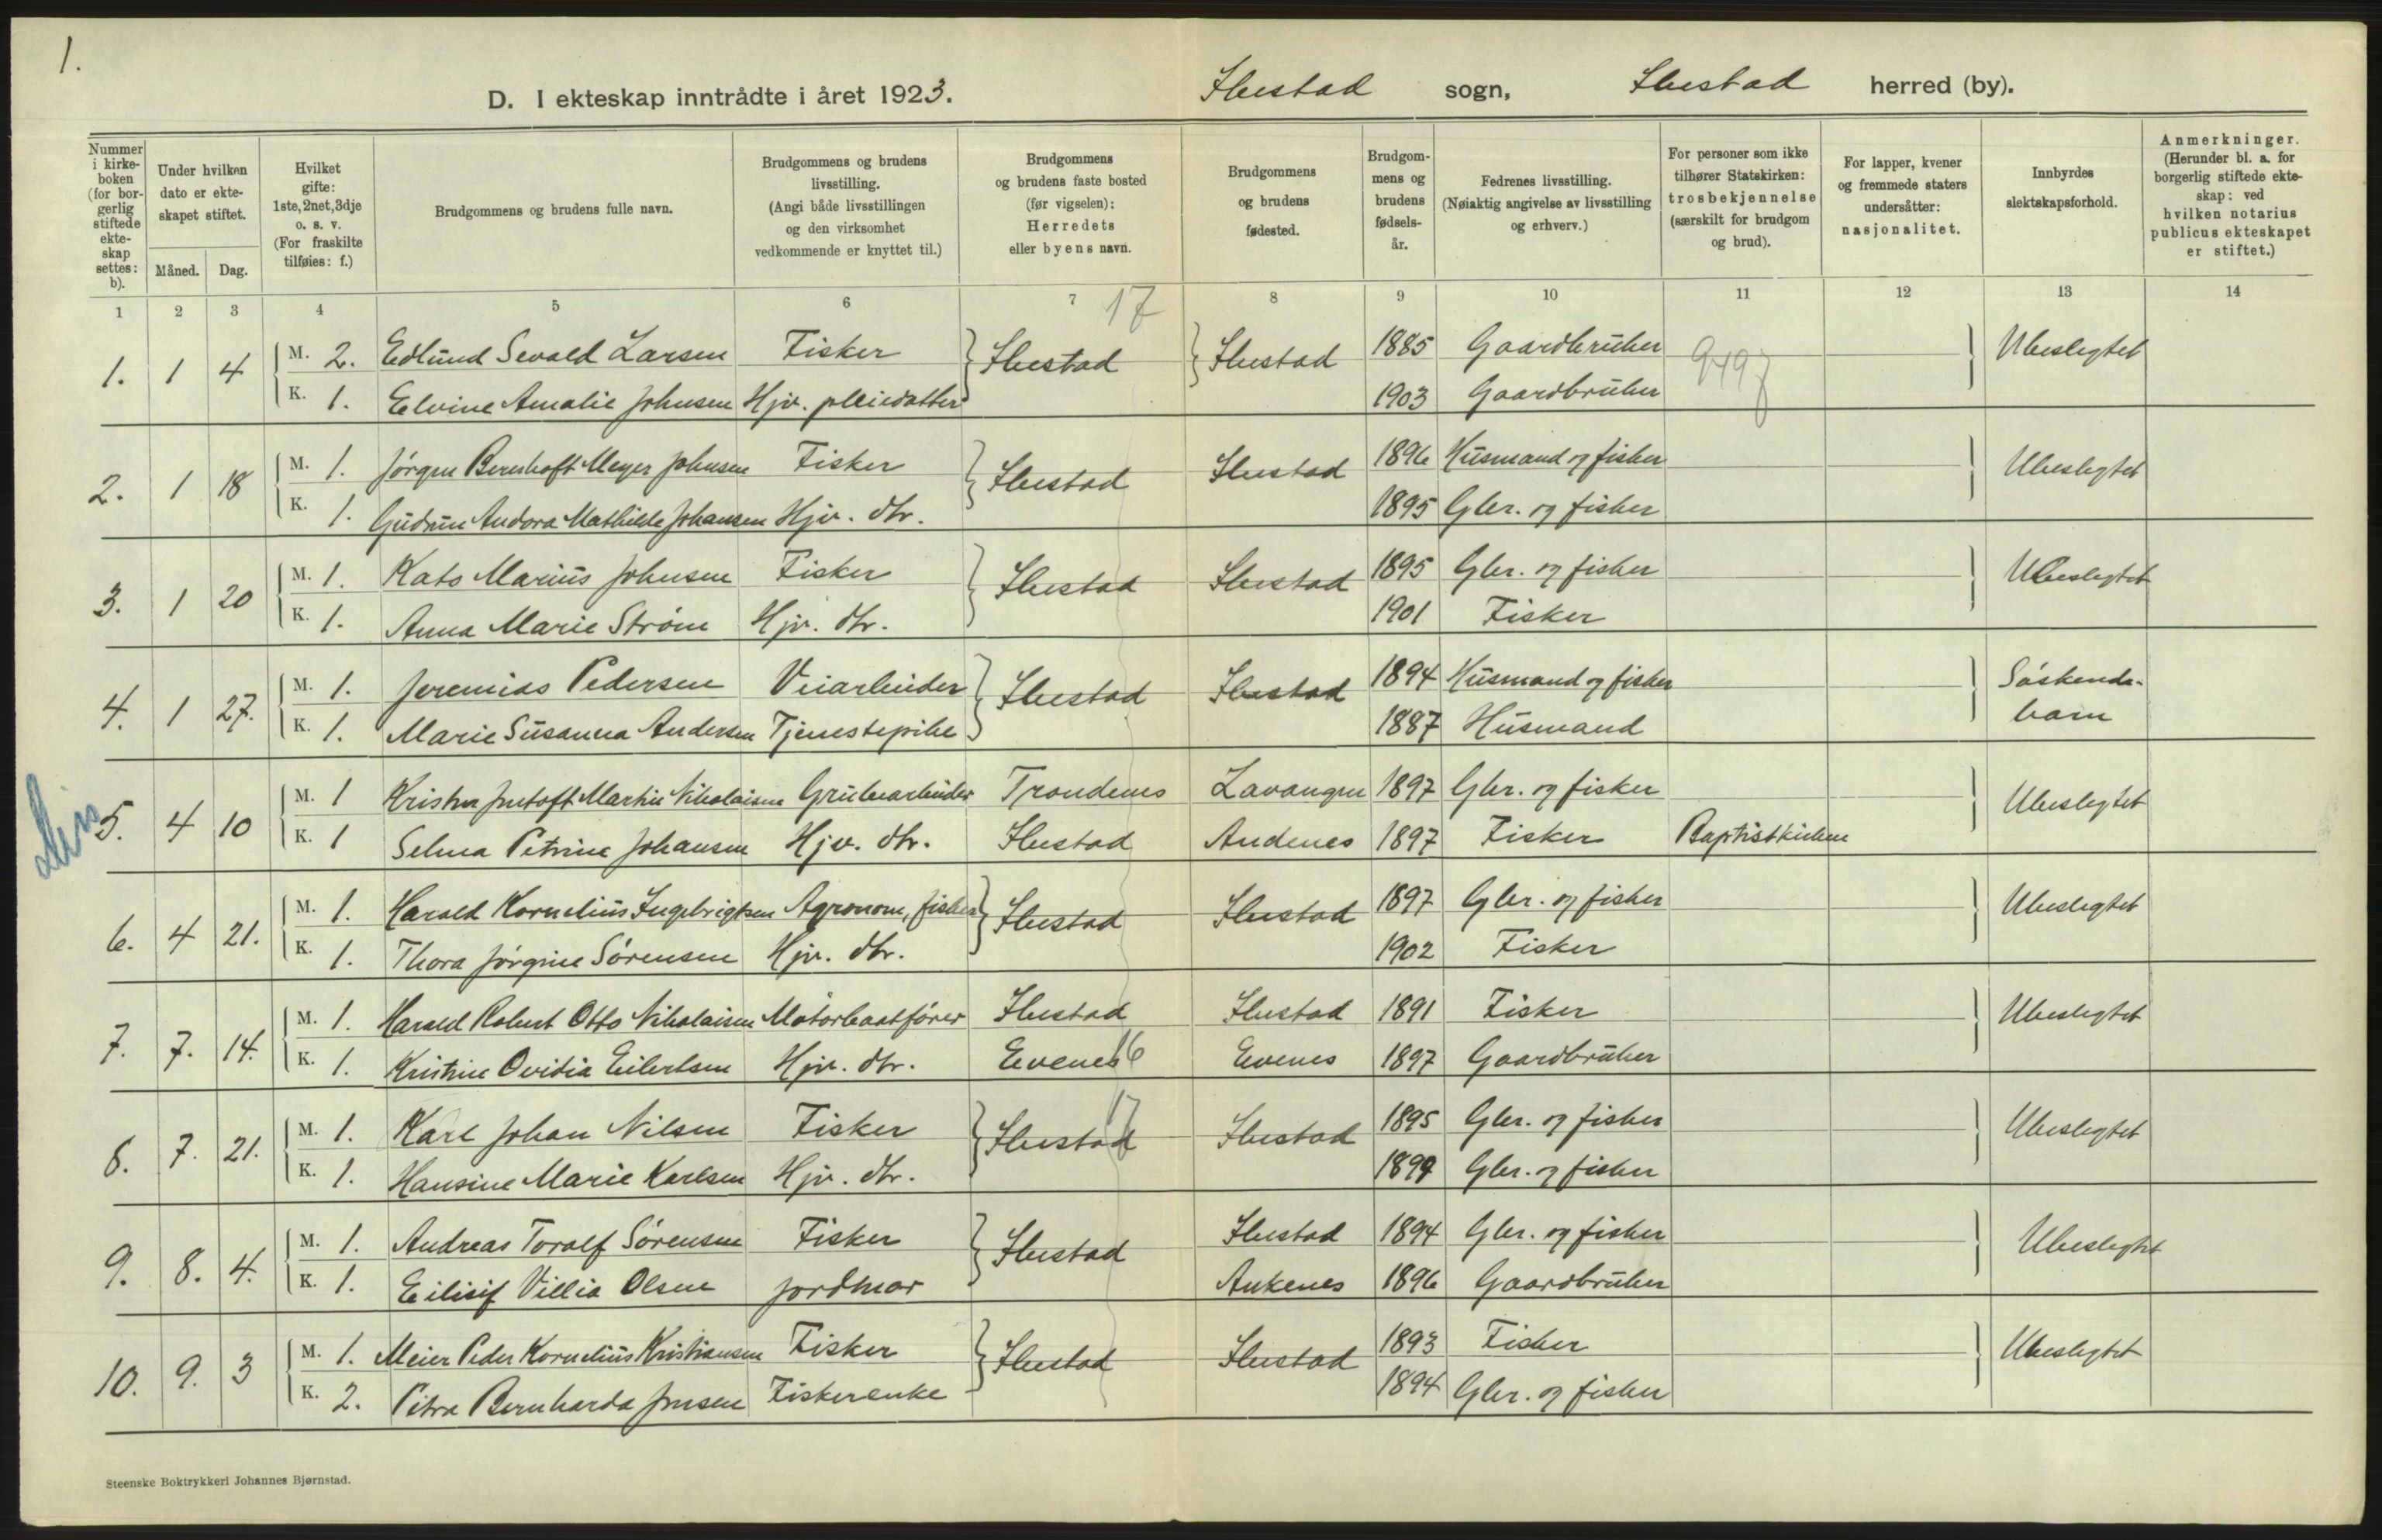 1.
D. I ekteskap inntrådte i året 1923. Ibestad sogn, Ibestad herred (by).
Nummer i kirkeboken (for borgerlig stiftede ekteskap settes: b).
Under hvilken dato er ekteskapet stiftet.
Måned. Dag.
Hvilket gifte: 1ste, 2net, 3dje o. s. v. (For fraskilte tilføies: f.)
Brudgommens og brudens fulle navn.
Brudgommens og brudens livsstilling. (Angi både livsstillingen og den virksomhet vedkommende er knyttet til.)
Brudgommens og brudens faste bosted (før vigselen): Herredets eller byens navn.
Brudgommens og brudens fødested.
Brudgommens og brudens fødselsår.
Fedrenes livsstilling. (Nøiaktig angivelse av livsstilling og erhverv.)
For personer som ikke tilhører Statskirken: trosbekjennelse (særskilt for brudgom og brud).
For lapper, kvener og fremmede staters undersåtter: nasjonalitet.
Innbyrdes slektskapsforhold.
Anmerkninger. (Herunder bl. a. for borgerlig stiftede ekteskap: ved hvilken notarius publicus ekteskapet er stiftet.)
1 2 3 4 5 6 7 17 8 9 10 11 12 13 14
1. 1 4 M. 2. Edlund Sevald Larsen Fisker Ibestad Ibestad 1885 Gaardbruker 9497 Ubeslegtet
K. 1. Elvine Amalie Johnsen Hjv. pleiedatter 1903 Gaardbruker
2. 1 18 M. 1. Jörgen Bernhoft Meyer Johnsen Fisker Ibestad Ibestad 1896 Husmand og fisker Ubeslegtet
K. 1. Gudrun Andora Mathilde Johansen Hjv. dtr. 1895 Gbr. og fisker
3. 1 20 M. 1. Kato Marius Johnsen Fisker Ibestad Ibestad 1895 Gbr. og fisker Ubeslegtet
K. 1. Anna Marie Strøm Hjv. dtr. 1901 Fisker
4. 1 27. M. 1. Jeremias Pedersen Veiarbeider Ibestad Ibestad 1894 Husmand og fisker Söskende-
K. 1. Marie Susanna Andersen Tjenestepike 1887 Husmand barn
5. 4 10 M. 1 Martin Nikolaisen Grubearbeider Trondenes Lavangen 1897 Gbr. og fisker Ubeslegtet
K. 1 Selma Petrine Johansen Hjv. dtr. Ibestad Andenes 1897 Fisker Baptistkirken
6. 4 21. M. 1. Harald Kornelius Ingebrigtsen Agronom, fisker Ibestad Ibestad 1897 Gbr. og fisker Ubeslegtet
K. 1. Thora Jörgine Sörensen Hjv. dtr. 1902 Fisker
7. 7. 14. M. 1. Harald Robert Otto Nikolaisen Motorbaatförer Ibestad Ibestad 1891 Fisker Ubeslegtet
K. 1. Kristine Ovidia Eilertsen Hjv. dtr. Evenes 16 Evenes 1897 Gaardbruker
8. 7. 21. M. 1. Karl Johan Nilsen Fisker Ibestad 17 Ibestad 1895 Gbr. og fisker Ubeslegtet
K. 1. Hansine Marie Karlsen Hjv. dtr. 1899 Gbr. og fisker
9. 8. 4. M. 1. Andreas Toralf Sörensen Fisker Ibestad Ibestad 1894 Gbr. og fisker Ubeslegtet
K. 1. Eilisif Villia Olsen Jordmor Ankenes 1896 Gaardbruker
10. 9. 3 M. 1. Meier Peder Kornelius Kristiansen Fisker Ibestad Ibestad 1893 Fisker Ubeslegtet
K. 2. Petra Bernharda Jensen Fiskerenke 1894 Gbr. og fisker
Steenske Boktrykkeri Johannes Bjørnstad.